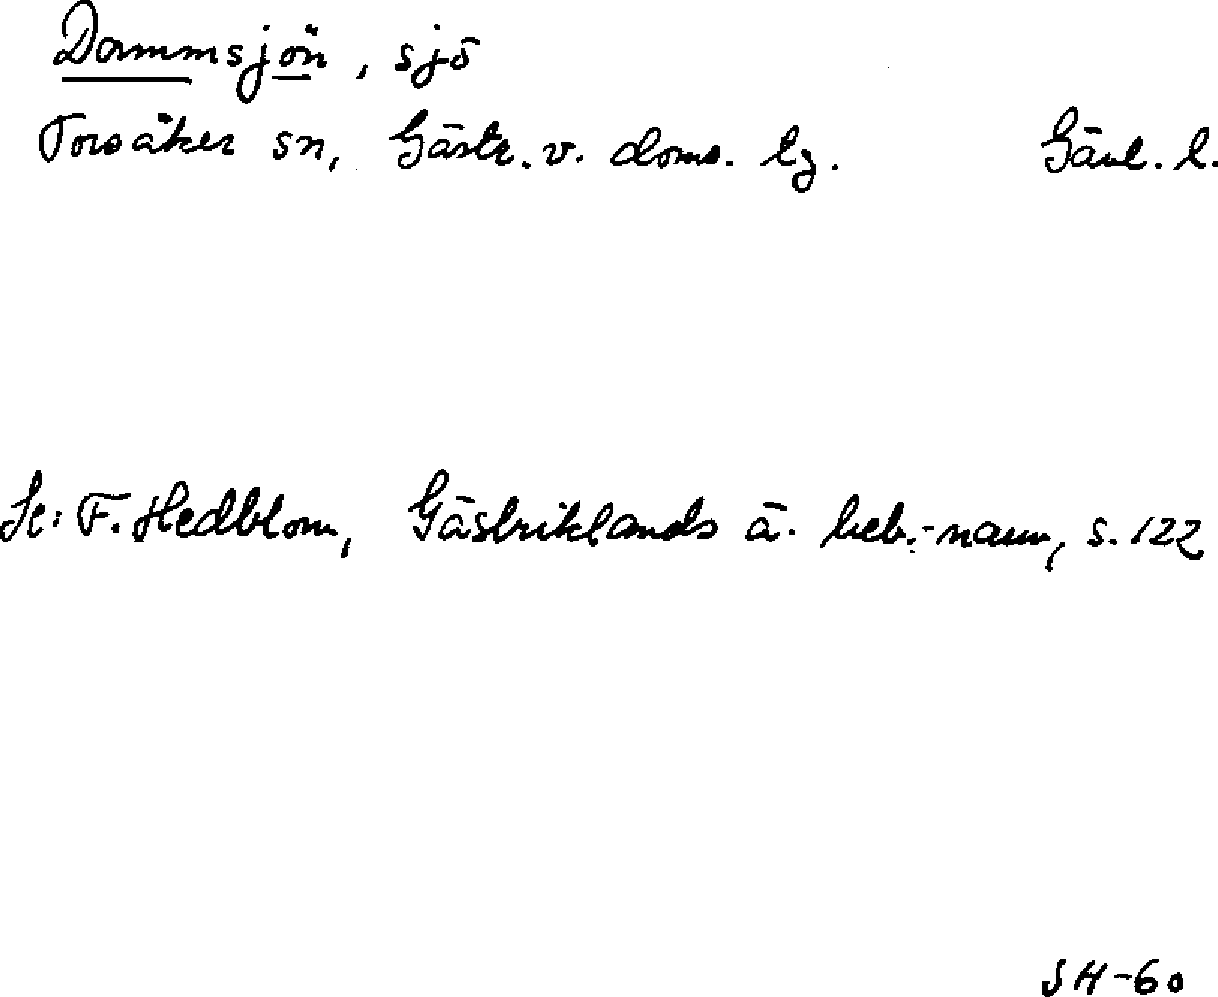 Dammsjön, sjö
Torsåker sn, Gästr. v. doms. lg. Gävl. l.
Se: F. Hedblom, Gästriklands ä. beb.-namn, s. 122
SH-60